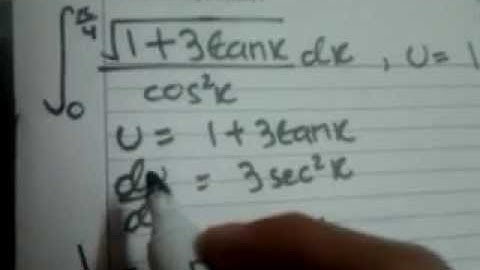 ∫₀^(π/4) √(1+3tanx) / cos²x dx , U = 1
U = 1+3tanx
du = 3sec²x